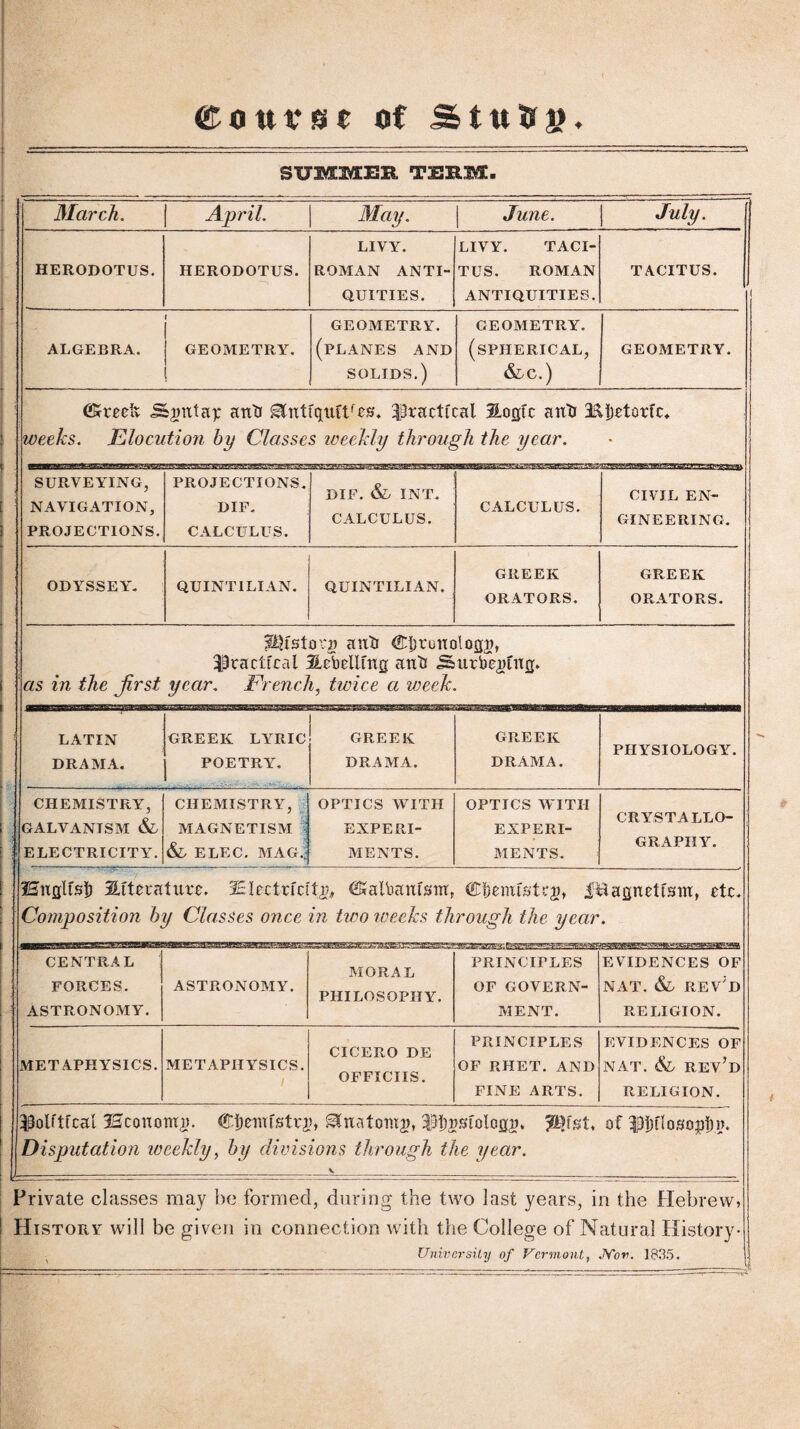 Course of Study.
SUMMER TERM.
March. April. May. June. July.
HERODOTUS.
HERODOTUS.
LIVY.
ROMAN ANTI-
QUITIES.
LIVY. TACI-
TUS. ROMAN
ANTIQUITIES.
TACITUS.
ALGEBRA.
GEOMETRY.
GEOMETRY.
(PLANES AND
SOLIDS.)
GEOMETRY.
(SPHERICAL,
&C.)
GEOMETRY.
Greek Syntax and Antiquit'es. Practical Logic and Rhetoric.
weeks. Elocution by Classes weekly through the year.
SURVEYING,
NAVIGATION,
PROJECTIONS.
PROJECTIONS.
DIF.
CALCULUS.
DIF. & INT.
CALCULUS.
CALCULUS.
CIVIL EN-
GINEERING.
ODYSSEY.
QUINTILIAN.
QUINTILIAN.
GREEK
ORATORS.
GREEK
ORATORS.
History and Chronology,
Practical Levelling and Surveying.
as in the first year. French, twice a week.
LATIN
DRAMA.
GREEK LYRIC
POETRY.
GREEK
DRAMA.
GREEK
DRAMA.
PHYSIOLOGY.
CHEMISTRY,
GALVANISM &
ELECTRICITY.
CHEMISTRY,
MAGNETISM
& ELEC. MAG.
OPTICS WITH
EXPERI-
MENTS.
OPTICS WITH
EXPERI-
MENTS.
CRYSTALLO-
GRAPHY.
English Literature. Electricity, Galvanism, Chemistry, Magnetism, etc.
Composition by Classes once in two weeks through the year.
CENTRAL
FORCES.
ASTRONOMY.
ASTRONOMY.
MORAL
PHILOSOPHY.
PRINCIPLES
OF GOVERN-
MENT.
EVIDENCES OF
NAT. & REV'D
RELIGION.
METAPHYSICS.
METAPHYSICS.
CICERO DE
OFFICIIS.
PRINCIPLES
OF RHET. AND
FINE ARTS.
EVIDENCES OF
NAT. & REV'D
RELIGION.
Political Economy. Chemistry, Anatomy, Physiology. Hist. of Philosophy.
Disputation weekly, by divisions through the year.
Private classes may be formed, during the two last years, in the Hebrew,
HISTORY will be given in connection with the College of Natural History.
University of Vermont, Nov. 1835.